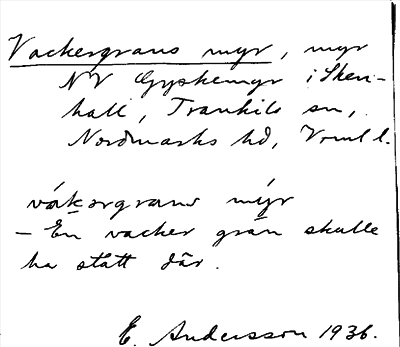 Vackergrans myr, myr
NV Gyskemyr i Sken-
hall, Trankils sn,
Nordmarks hd, Vrml l.
våkərgrans mýr
– En vacker gran skulle
ha stått där.
E. Andersson 1936.